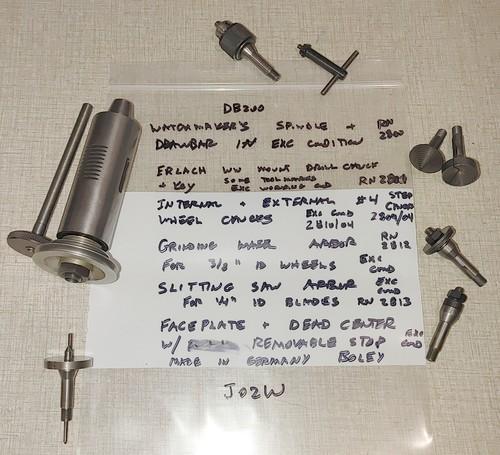 DB200
WATCHMAKER'S SPINDLE + RN 2800
DRAWBAR IN EXC CONDITION
ERLACH WW MOUNT DRILL CHUCK
+ KEY SOME TOOL MARKS EXC WORKING CND RN
INTERNAL + EXTERNAL #4 STEP
WHEEL CHUCKS EXC CND 2810/04 2809/04
GRINDING WHEEL ARBOR RN 2812
FOR 3/8" ID WHEELS EXC CND
SLITTING SAW ARBOR EXC CND
FOR 1/4" ID BLADES RN 2813
FACEPLATE + DEAD CENTER
W/ REMOVABLE STOP EXC CND
MADE IN GERMANY BOLEY
J02W